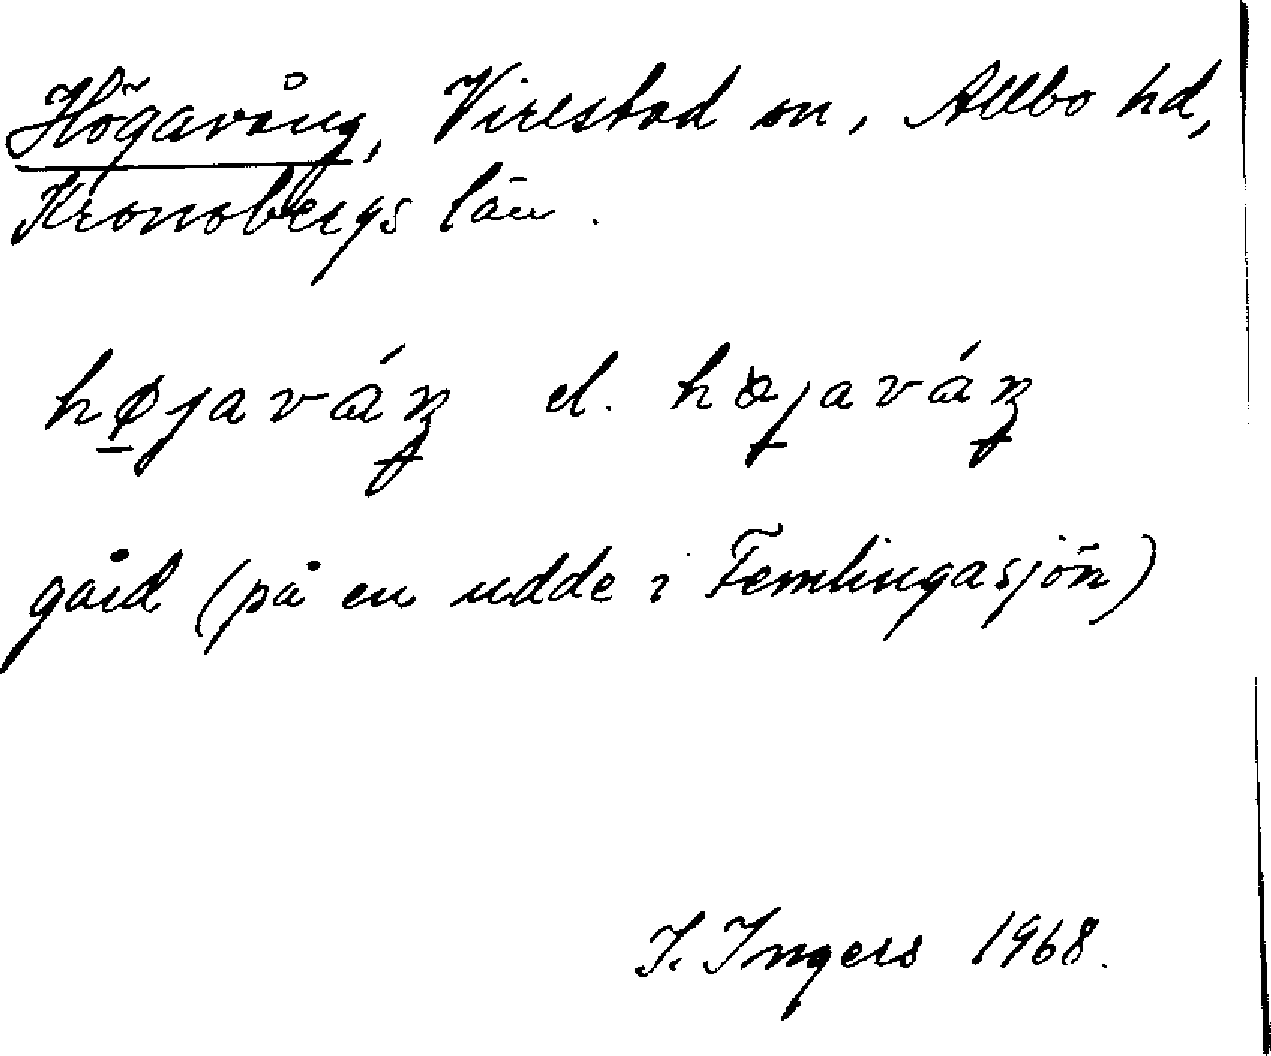 Högavång, Virestad sn, Allbo hd,
Kronobergs län.
højaváŋ el. højaváŋ
gård (på en udde i Femlingasjön)
I. Ingers 1968.